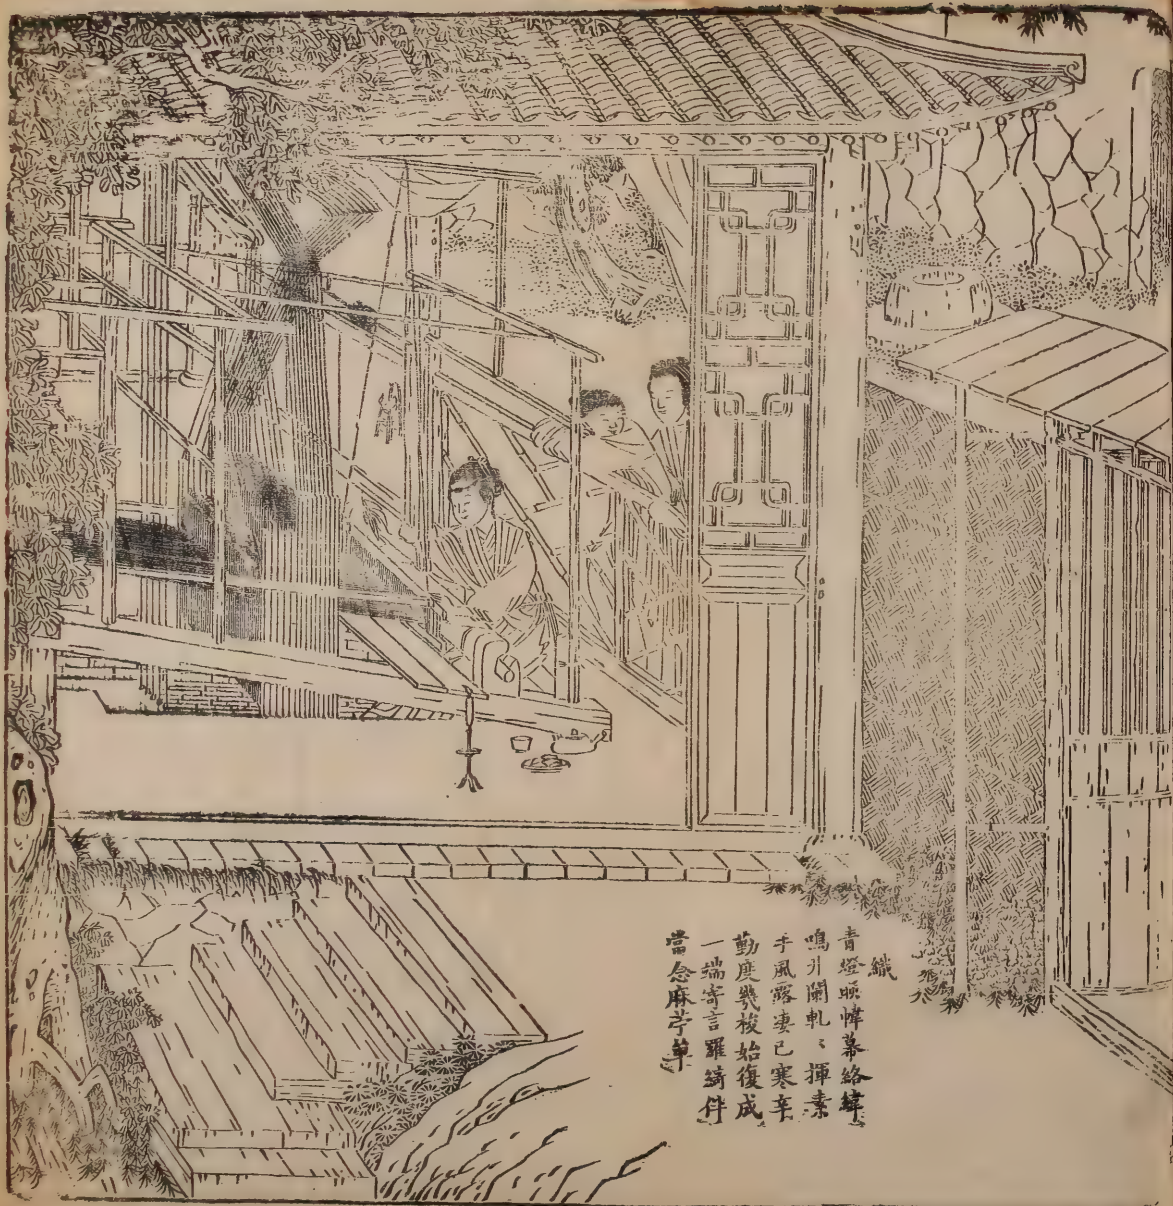 織
青燈暎幃幕絡緯
鳴井闌軋〻揮素
手風露凄已寒辛
勤度幾梭始復成
一端寄言羅綺伴
當念麻苧單